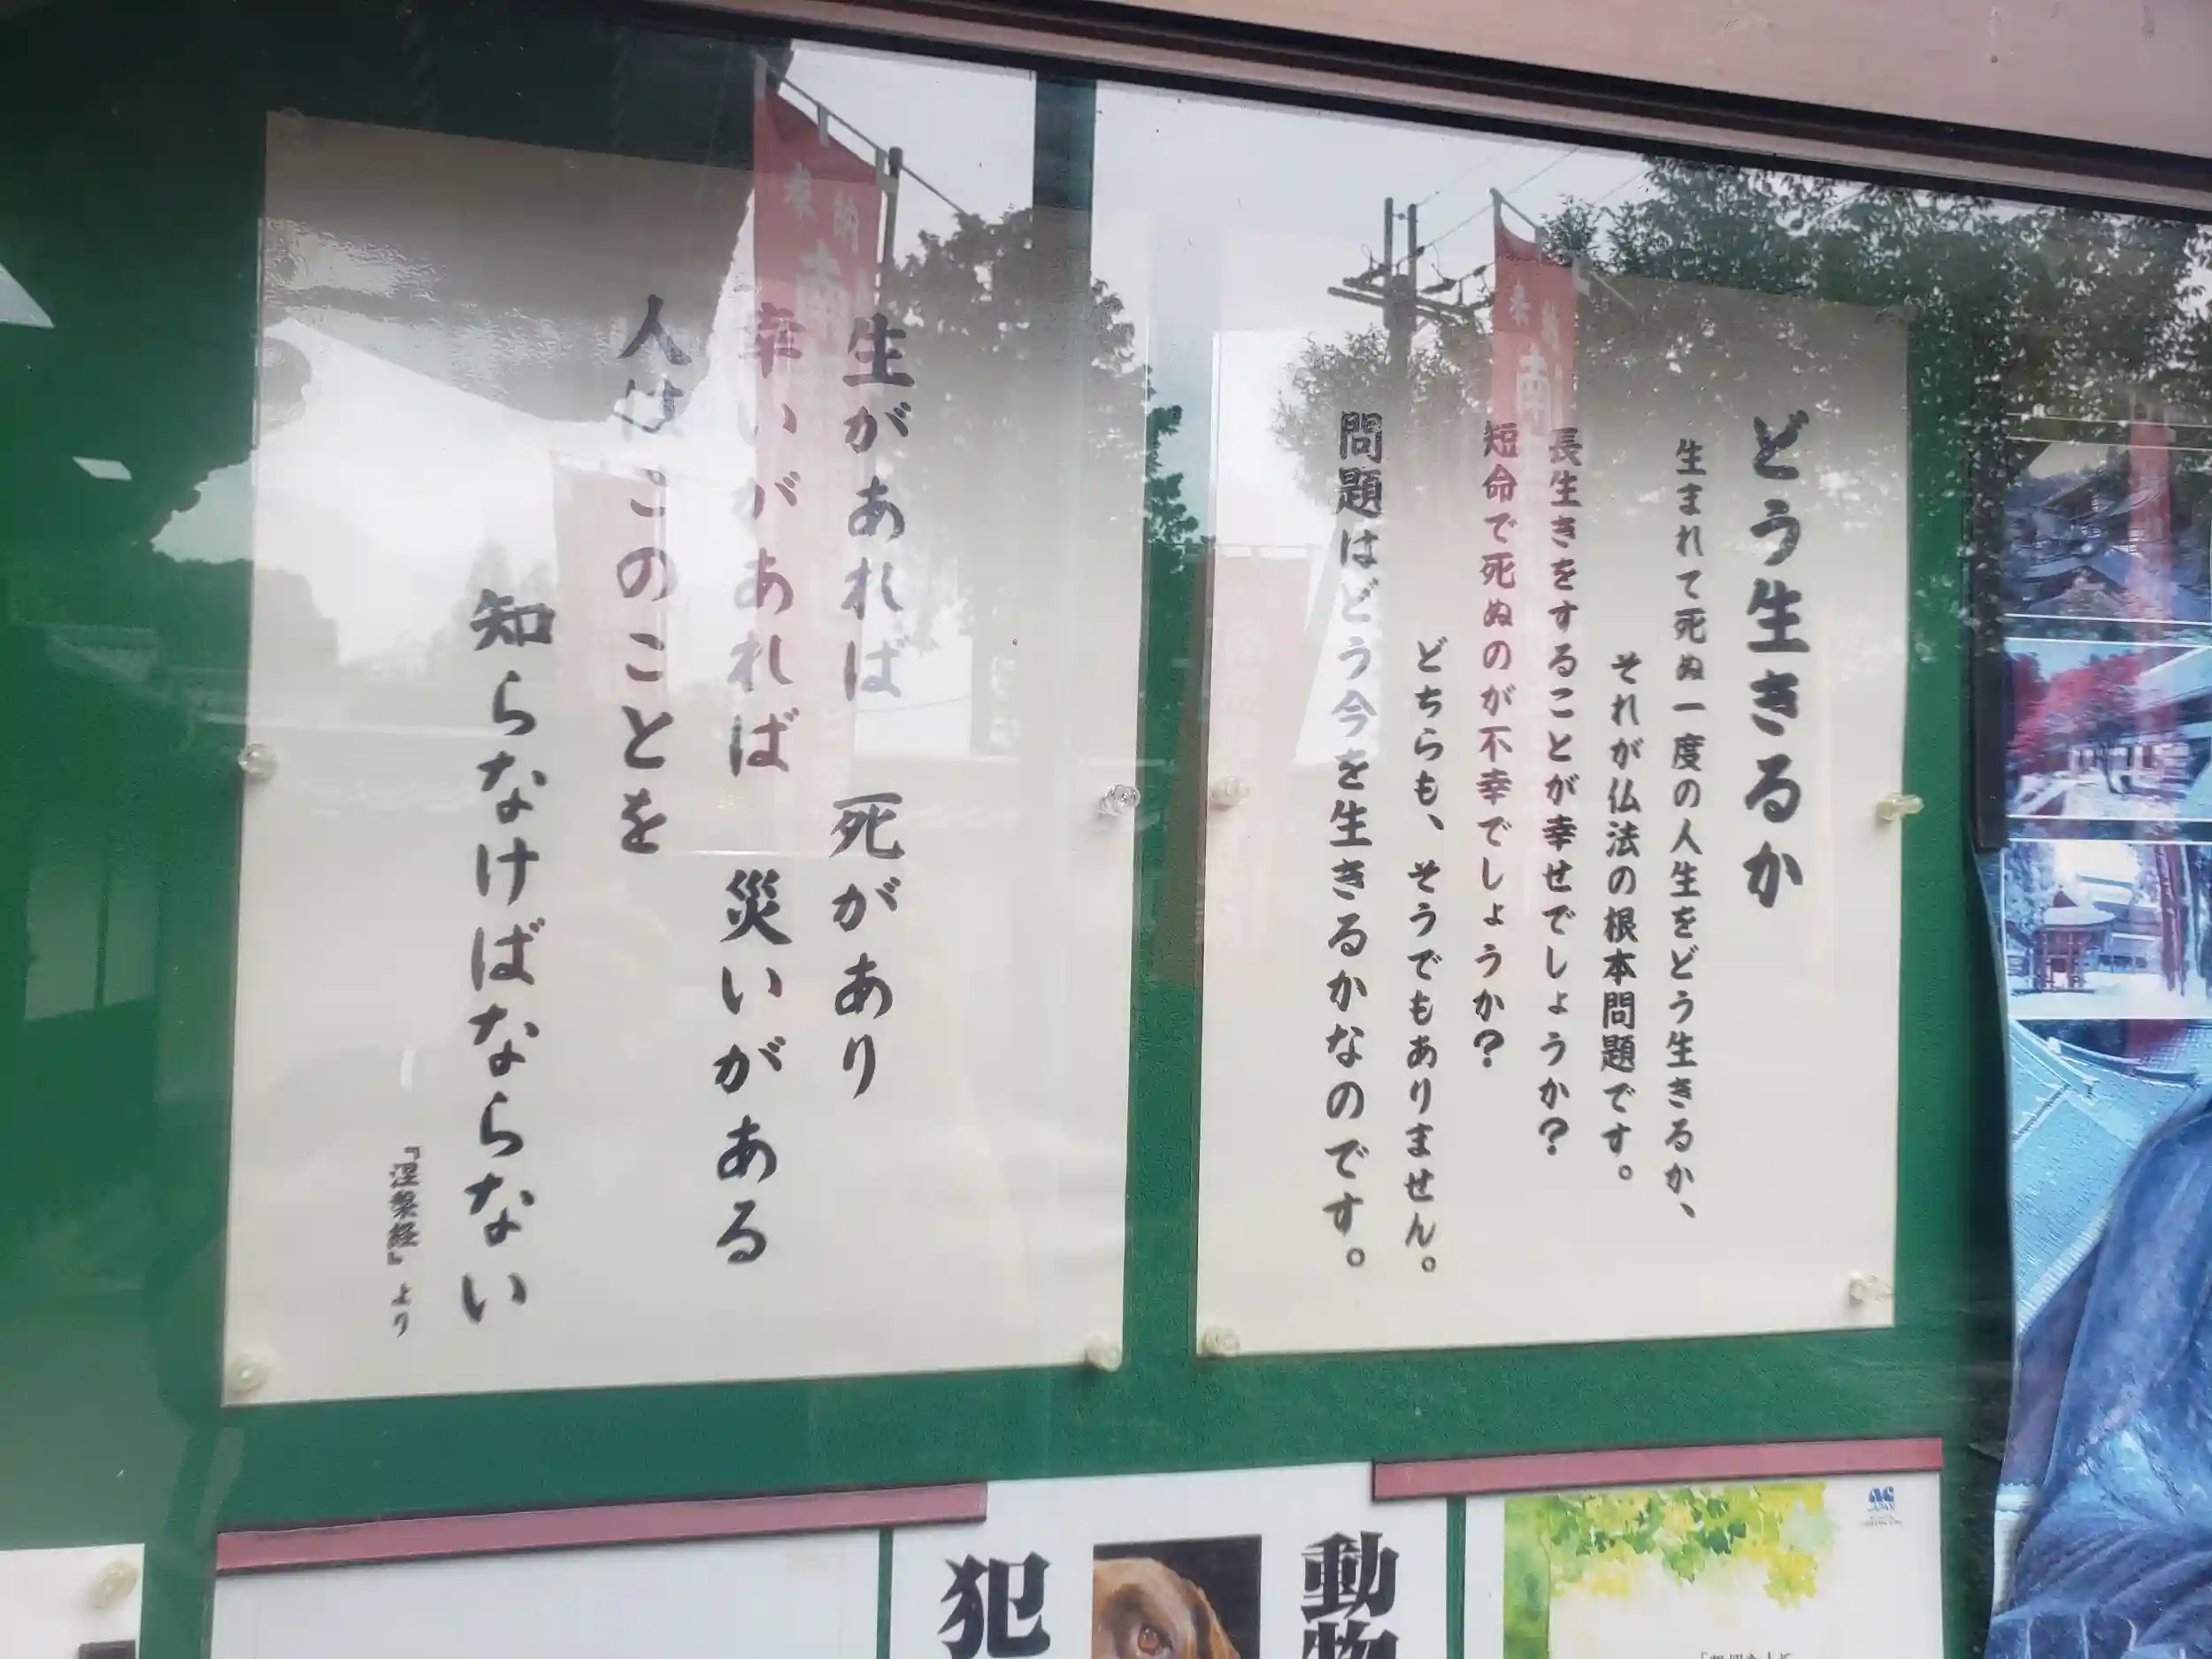 どう生きるか
生まれて死ぬ一度の人生をどう生きるか、
それが仏法の根本問題です。
長生きをすることが幸せでしょうか?
短命で死ぬのが不幸でしょうか?
どちらも、そうでもありません。
問題はどう今を生きるかなのです。
生があれば 死があり
幸いがあれば 災いがある
人はこのことを
知らなければならない
『涅槃経』より
奉納
南
奉納
南
動物
犯
AC
JAPAN